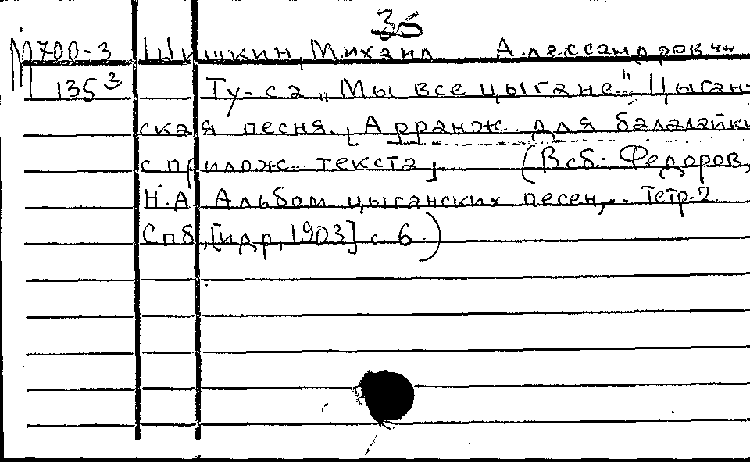 36
М700-3 Шишкин, Михаил Александрович
135³ Ту-са „Мы все цыгане..." Цыган-
ская песня. [Арранж. для балалайки
с прилож. текста] (В сб. Федоров,
Н.А. Альбом цыганских песен,.. Тетр. 2
Спб, [идр, 1903] с 6.)